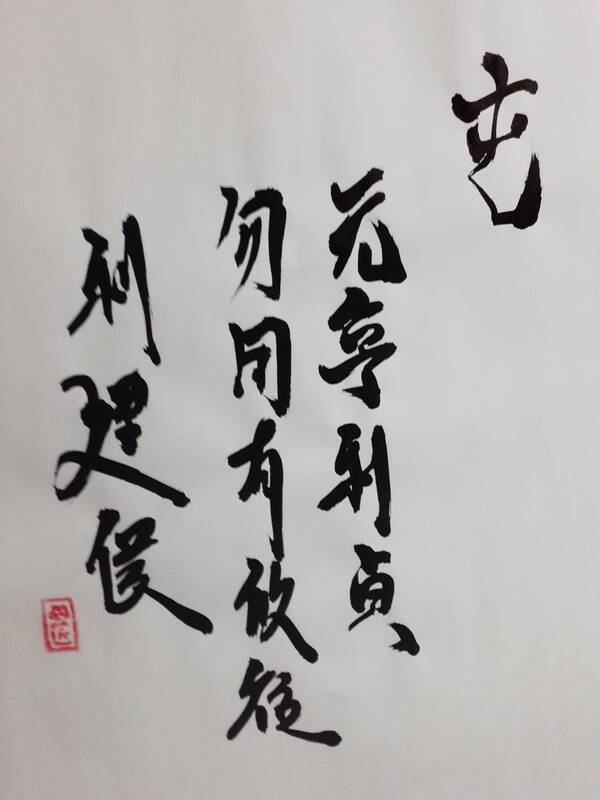 屯
元亨利貞
勿用有攸往
利建侯